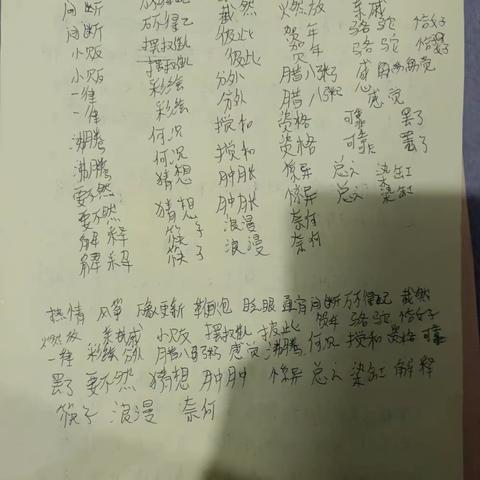 间断 万不得已 截然 燃放 亲戚
间断 万不得已 截然 贺年 骆驼 饺子
小贩 摆摊 彼此 贺年 骆驼 饺子
小贩 摆摊 彼此 腊八粥 感觉
一锥 彩绘 分外 腊八粥 感觉
一锥 彩绘 分外 资格 可靠 罢了
沸腾 何况 搅和 资格 可靠 罢了
沸腾 何况 搅和 惊异 总之 染缸
要不然 猜想 肿胀 惊异 总之 染缸
要不然 猜想 肿胀 奈何
解释 筷子 浪漫 奈何
解释 筷子 浪漫
热情 风筝 更新 鞭炮 眨眼 间断 万不得已 截然
燃放 亲戚 小贩 摆摊 彼此 贺年 骆驼 饺子
一锥 彩绘 分外 腊八粥 感觉 沸腾 何况 搅和 资格 可靠
罢了 要不然 猜想 肿胀 惊异 总之 染缸 解释
筷子 浪漫 奈何